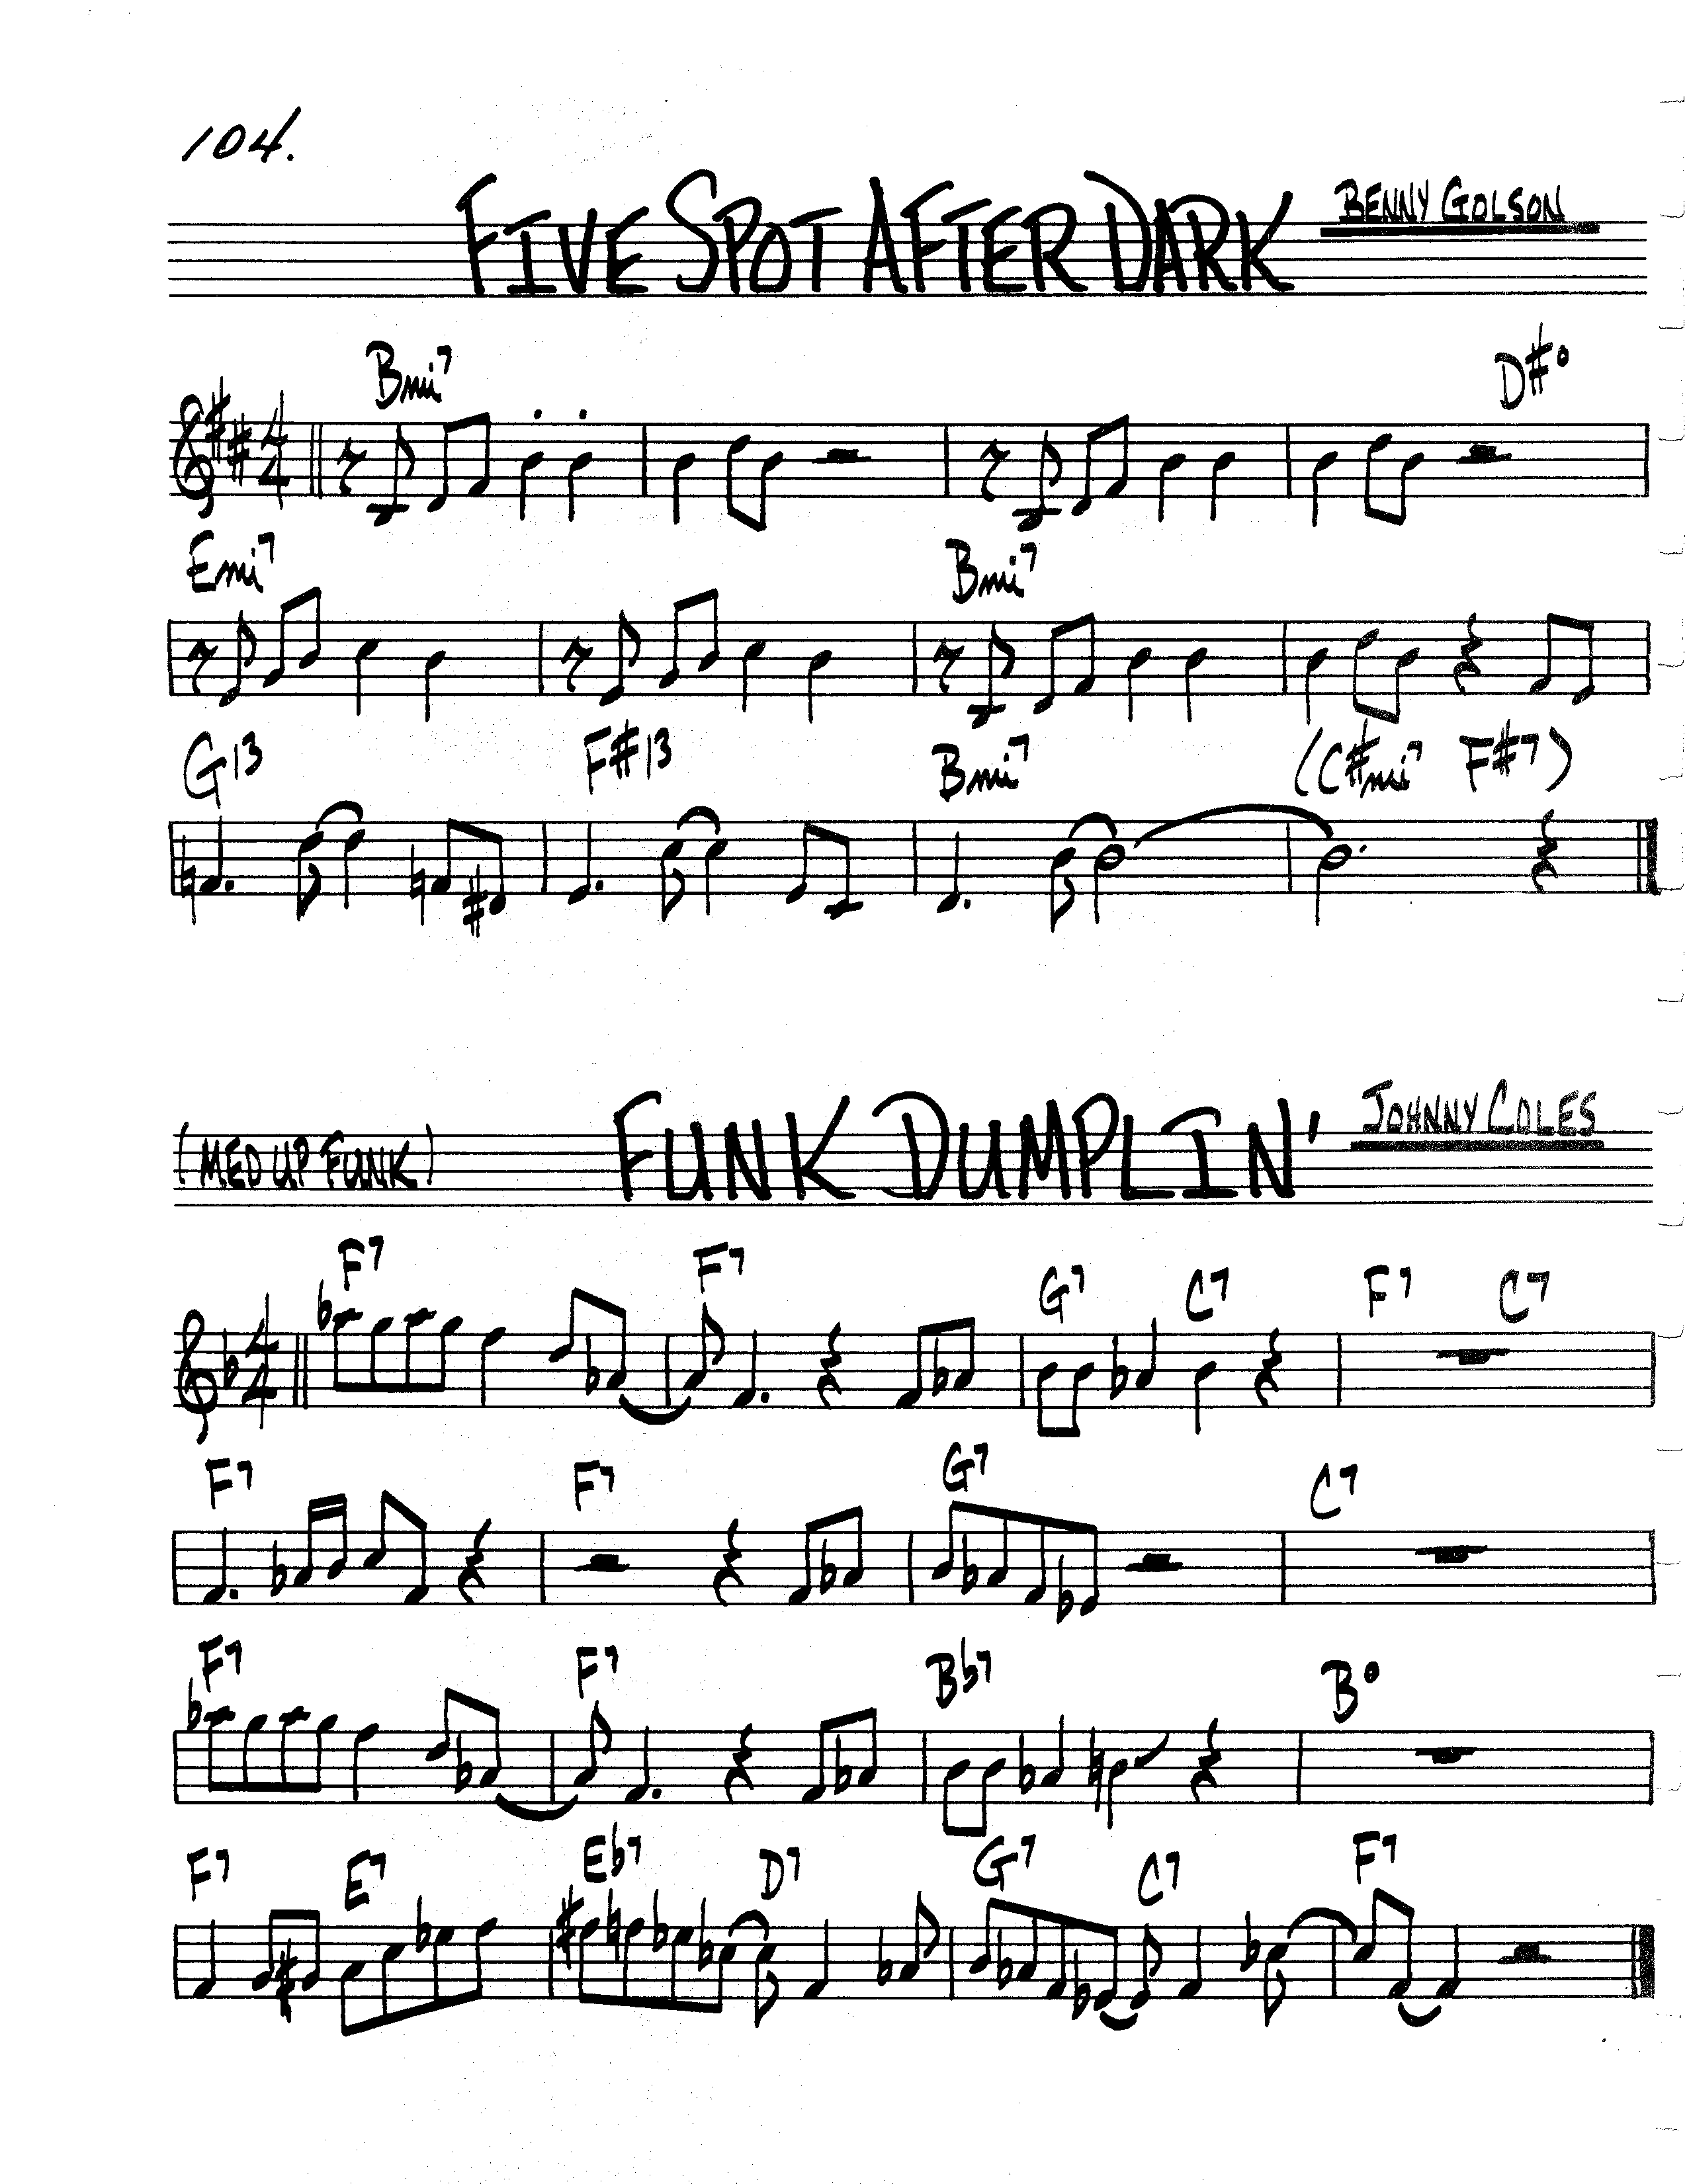 104.
FIVE SPOT AFTER DARK
BENNY GOLSON
4/4
Bmi7 D#°
Emi7 Bmi7
G13 F#13 Bmi7 (C#mi7 F#7)
(MED UP FUNK)
FUNK DUMPLIN'
JOHNNY COLES
4/4
F7 F7 G7 C7 F7 C7
F7 F7 G7 C7
F7 F7 Bb7 B°
F7 E7 Eb7 D7 G7 C7 F7